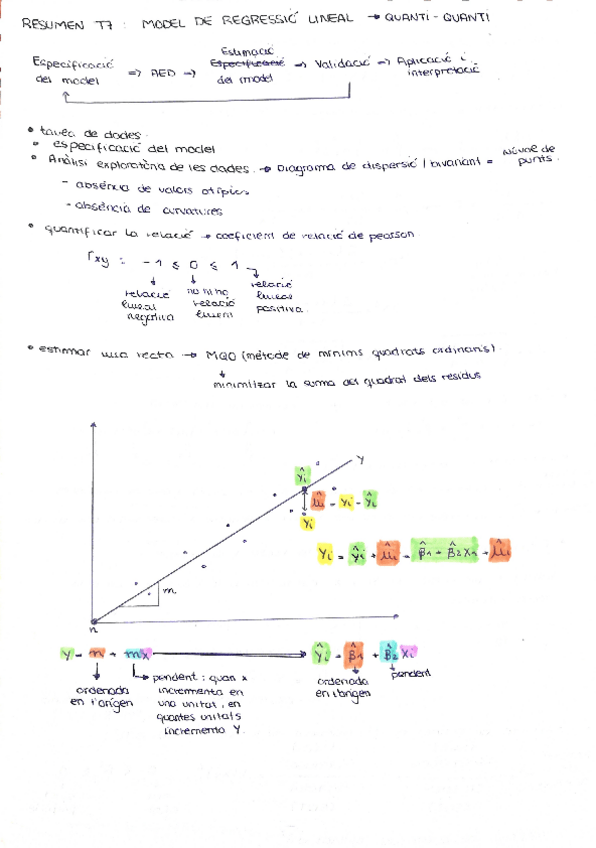 RESUMEN T7 : MODEL DE REGRESSIÓ LINEAL → QUANTI - QUANTI
Estimació
Especificació => AED => Especificació => Validació => Aplicació i
del model del model interpretació
• taula de dades
• especificació del model
• Anàlisi exploratòria de les dades → Diagrama de dispersió / bivariant = núvol de punts.
- absència de valors atípics
- absència de curvatures
• quantificar la relació → coeficient de relació de pearson
rxy = -1 ≤ 0 ≤ 1
relació lineal negativa
no hi ha relació lineal
relació lineal positiva
• estimar una recta → MQO (mètode de mínims quadrats ordinaris)
minimitzar la suma del quadrat dels residus
Y
ŷi
μ̂i = yi - ŷi
yi
yi = ŷi + μ̂i = β̂1 + β̂2 X1 + μ̂i
m
n
y = n + mx → ŷi = β̂1 + β̂2 Xi
ordenada
en l'origen
pendent : quan x
incrementa en
una unitat, en
quantes unitats
incrementa Y.
ordenada
en l'origen
pendent